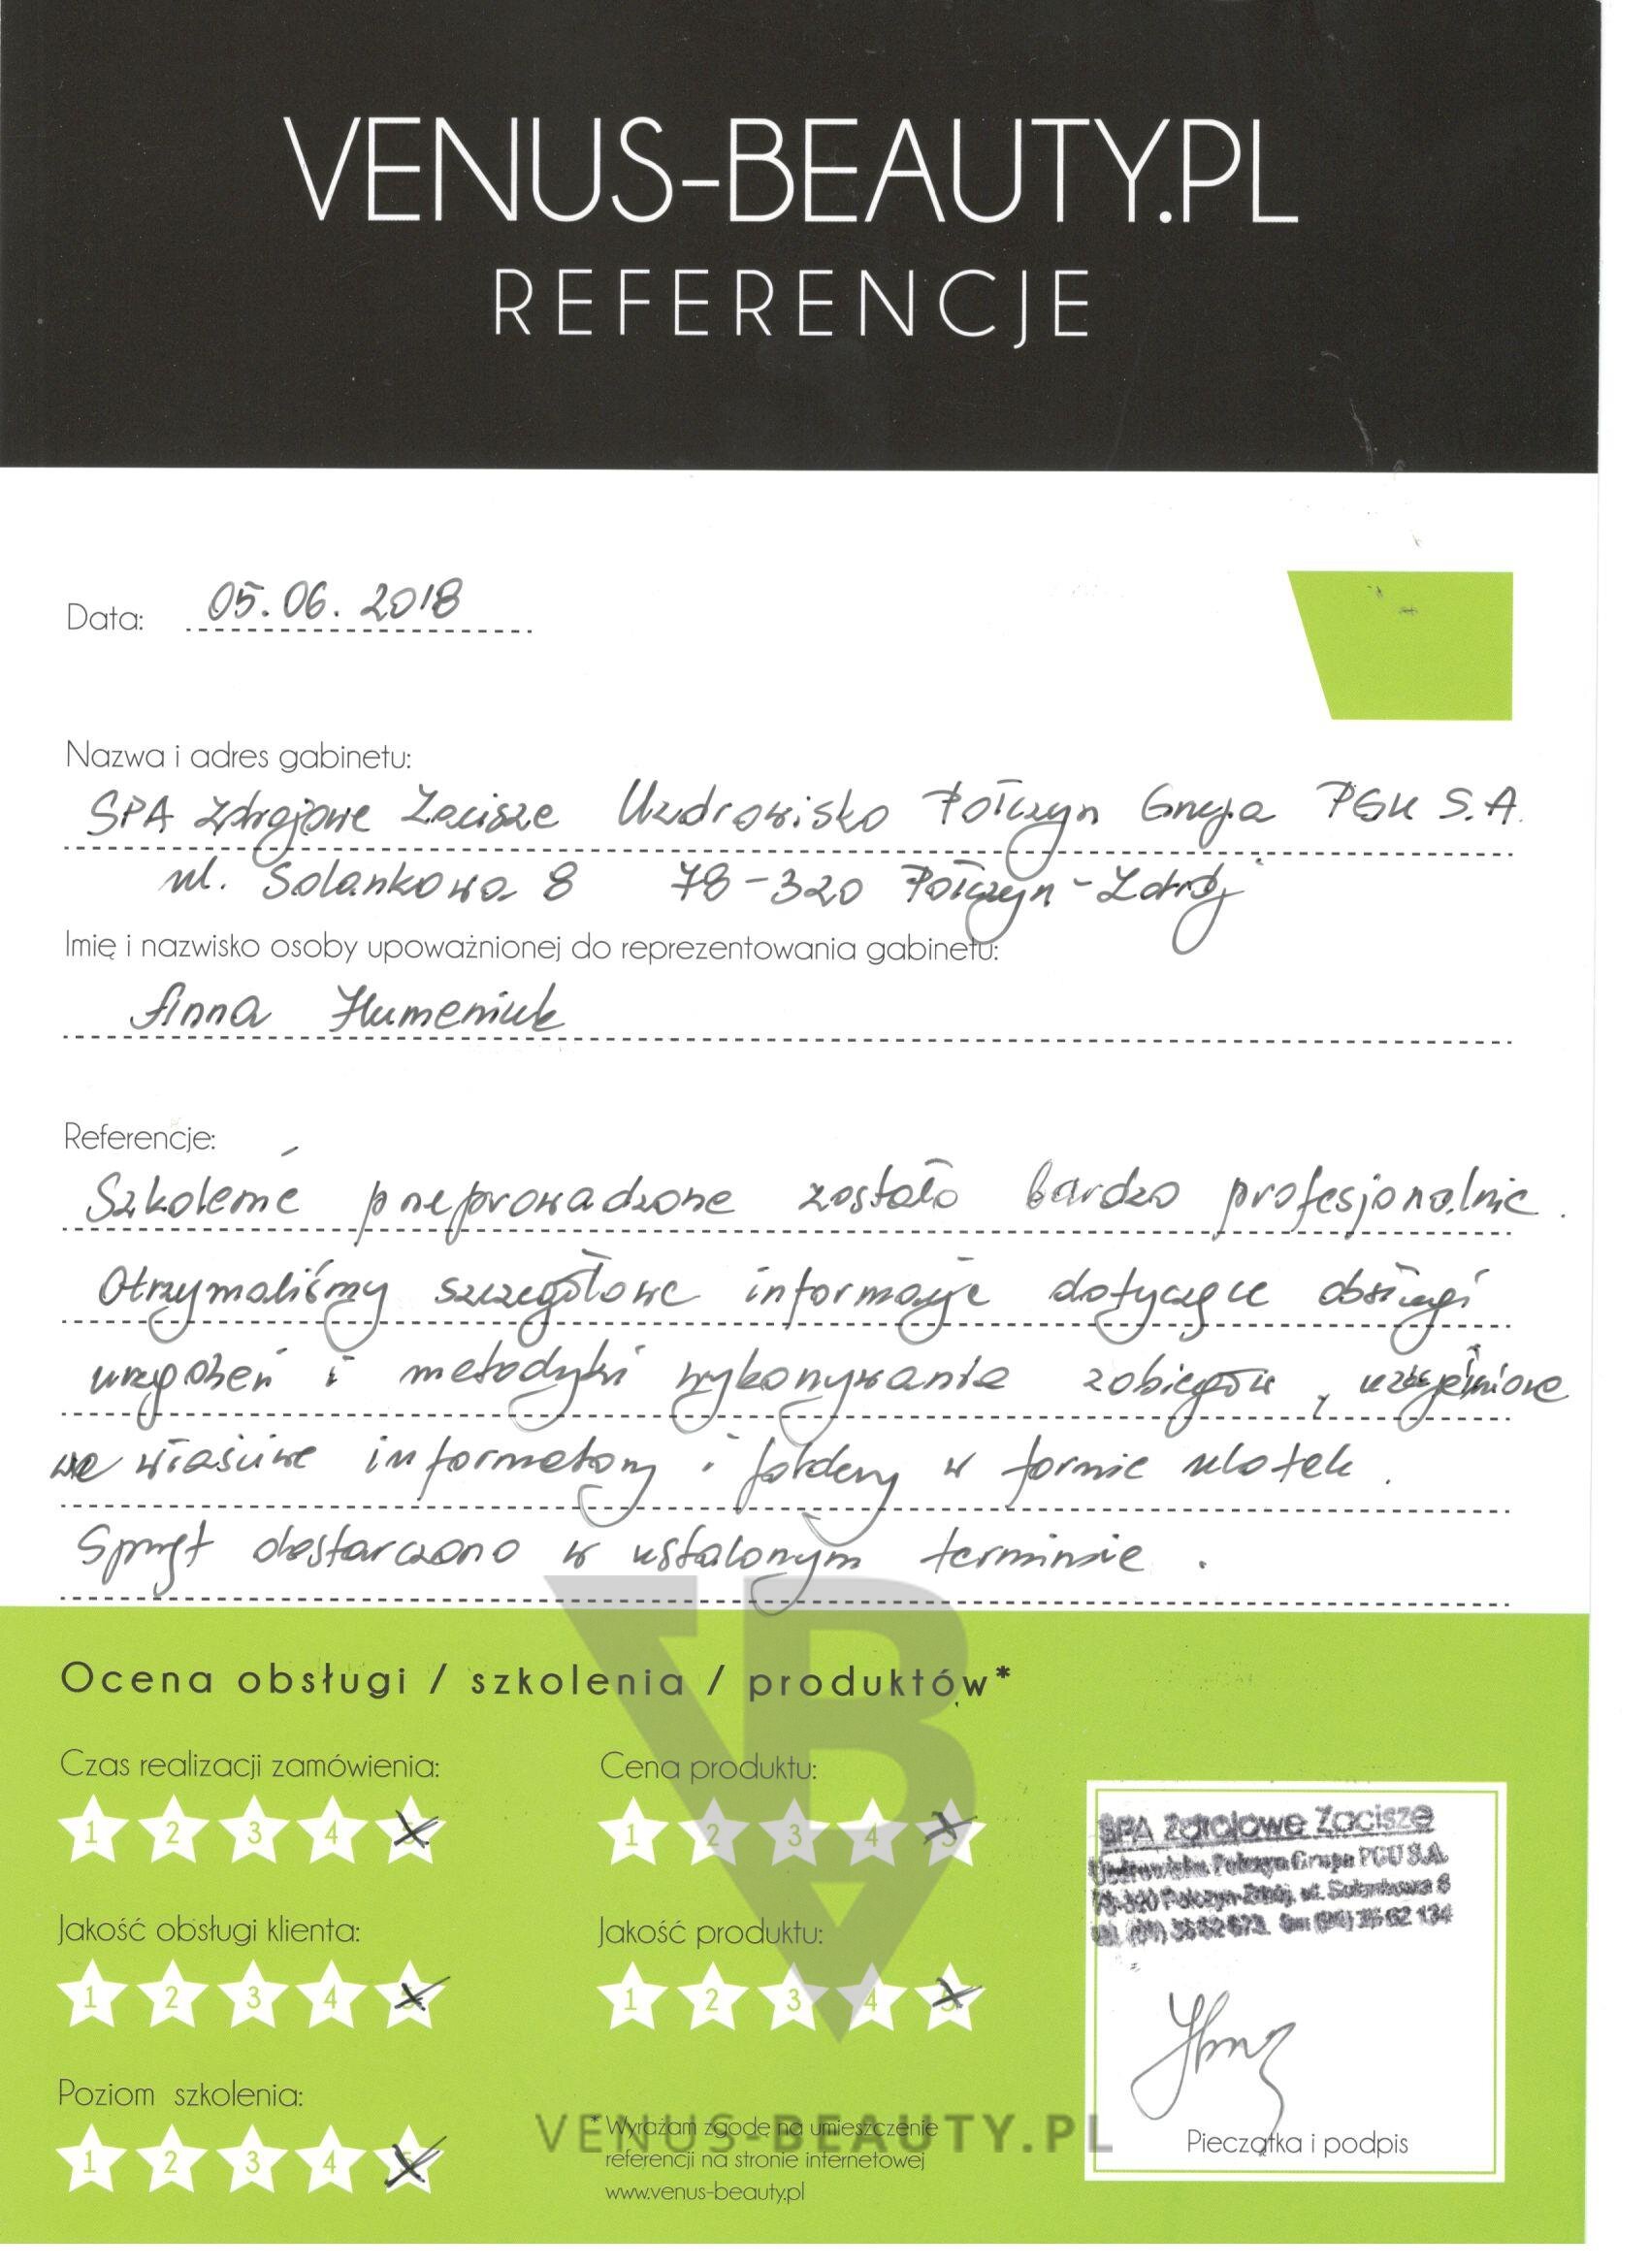 VENUS-BEAUTY.PL
REFERENCJE
Data: 05.06.2018
Nazwa i adres gabinetu:
SPA Zdrojowe Zacisze Uzdrowisko Połczyn Grupa PGU S.A.
ul. Solankowa 8 78-320 Połczyn-Zdrój
Imię i nazwisko osoby upoważnionej do reprezentowania gabinetu:
Anna Humeniuk
Referencje:
Szkolenie przeprowadzone zostało bardzo profesjonalnie.
Otrzymaliśmy szczegółowe informacje dotyczące obsługi
urządzeń i metodyki wykonywania zabiegów, uzupełnione
we właściwe informatory i foldery w formie ulotek.
Sprzęt dostarczono w ustalonym terminie.
Ocena obsługi / szkolenia / produktów*
Czas realizacji zamówienia:
1 2 3 4 5
Cena produktu:
1 2 3 4 5
Jakość obsługi klienta:
1 2 3 4 5
Jakość produktu:
1 2 3 4 5
Poziom szkolenia:
1 2 3 4 5
* Wyrażam zgodę na umieszczenie
referencji na stronie internetowej
www.venus-beauty.pl
VB
VENUS-BEAUTY.PL
SPA Zdrojowe Zacisze
Uzdrowisko Połczyn Grupa PGU S.A.
78-320 Połczyn-Zdrój, ul. Solankowa 8
Pieczątka i podpis